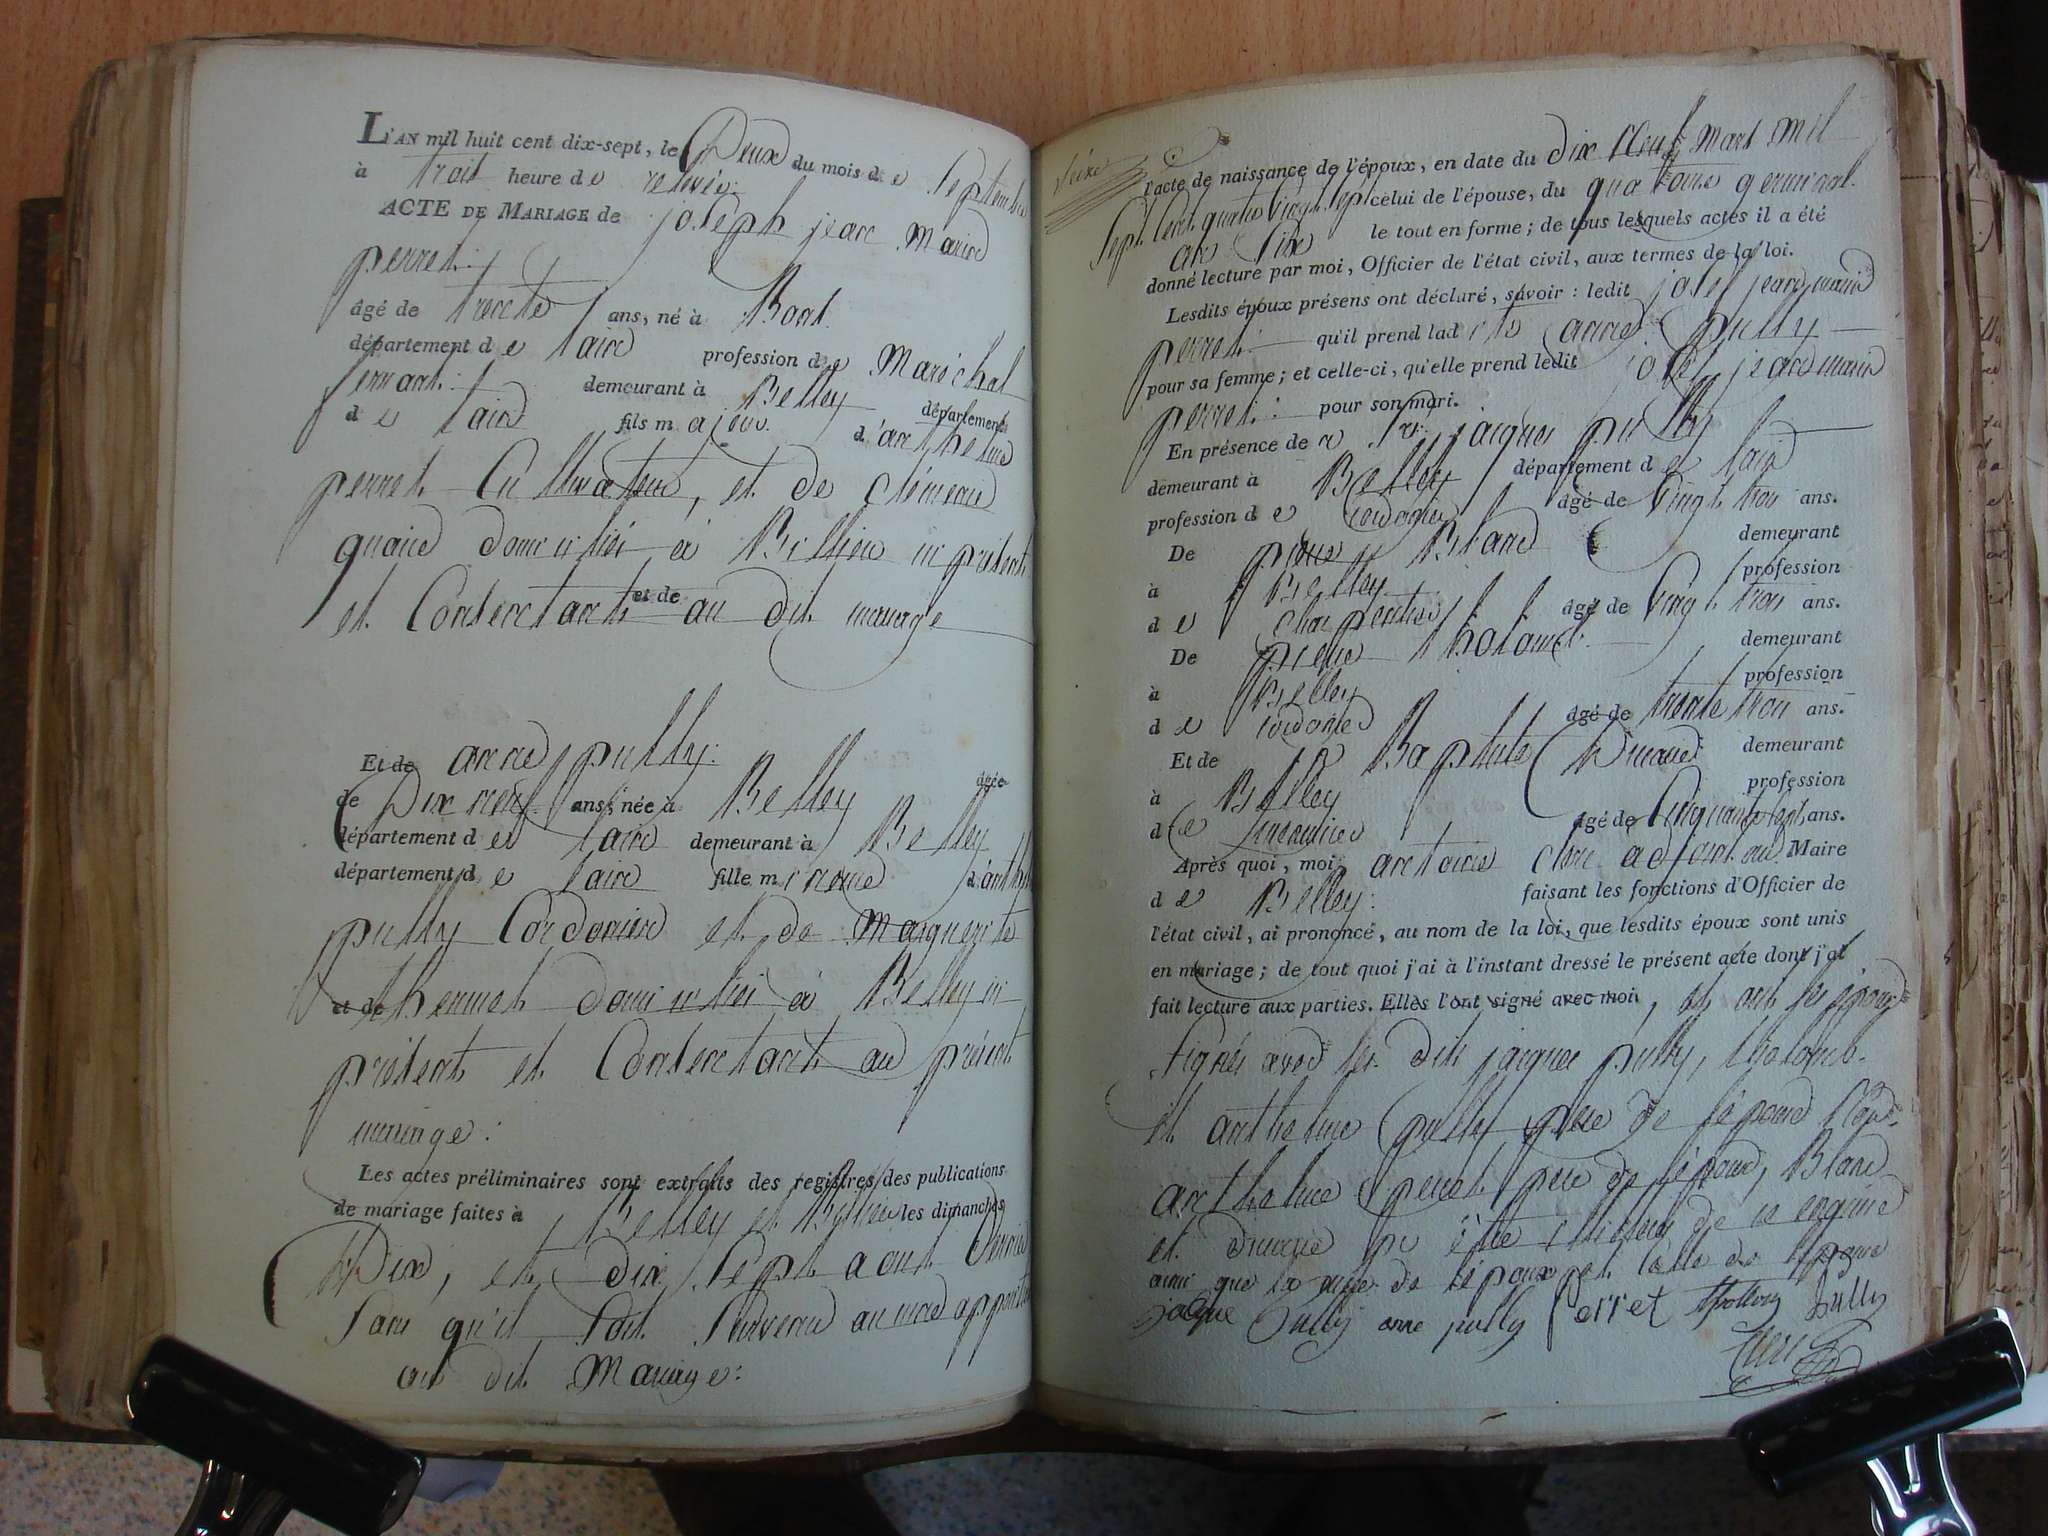 L'AN mil huit cent dix-sept, le Deux du mois de Septembre
à trois heure de relevée
ACTE DE MARIAGE de joseph jean Marie
perret
âgé de trente ans, né à Bont
département de laire profession de Maréchal
ferrant demeurant à Belley département
de laire fils majeur d'anthelme
perret Cultivateur, et de
domicilié à Billieu ici présent
et Consentant au dit mariage
et de
Et de anne pully
âgée
de Dix neuf ans, née à Belley
département de laire demeurant à Belley
département de laire fille mineure d'anth
pully Cordonier et de Marguerite
et de thermet domicilié à Belley ici
présent et Consentant au présent
mariage:
Les actes préliminaires sont extraits des registres des publications
de mariage faites à Belley et Billieu les dimanches
Dix, et dix Sept aout dernier
Sans qu'il Soit Survenu aucune opposition
au dit Mariage:
l'acte de naissance de l'époux, en date du dix neuf mars mil
Sept Cent quatre vingt sept celui de l'épouse, du quatorze germinal
an Six le tout en forme; de tous lesquels actes il a été
donné lecture par moi, Officier de l'état civil, aux termes de la loi.
Lesdits époux présens ont déclaré, savoir: ledit josef jean marie
perret qu'il prend ladite anne pully
pour sa femme; et celle-ci, qu'elle prend ledit josef jean marie
perret: pour son mari.
En présence de jacques pully
demeurant à Belley département de laire
profession de cordonier âgé de vingt trois ans.
De pierre Bland demeurant
à Belley profession
de charpentier âgé de vingt trois ans.
De pierre tholomb demeurant
à Belley profession
de cordonier âgé de trente trois ans.
Et de Baptiste demeurant
à Belley profession
de âgé de Cinquante sept ans.
Après quoi, moi, antoine adjoint au Maire
de Belley: faisant les fonctions d'Officier de
l'état civil, ai prononcé, au nom de la loi, que lesdits époux sont unis
en mariage; de tout quoi j'ai à l'instant dressé le présent acte dont j'ai
fait lecture aux parties. Elles l'ont signé avec moi, et ont les époux
signés avec les dits jacques pully, tholomb
et anthelme pully père de l'épouse
anthelme perret père de l'époux, Bland
et de ce enquis
ainsi que la mère de l'époux et celle de l'épouse
jacque pully anne pully perret pully